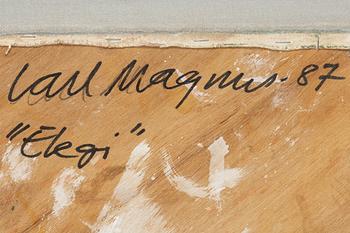 Carl Magnus -87
"Elegi"